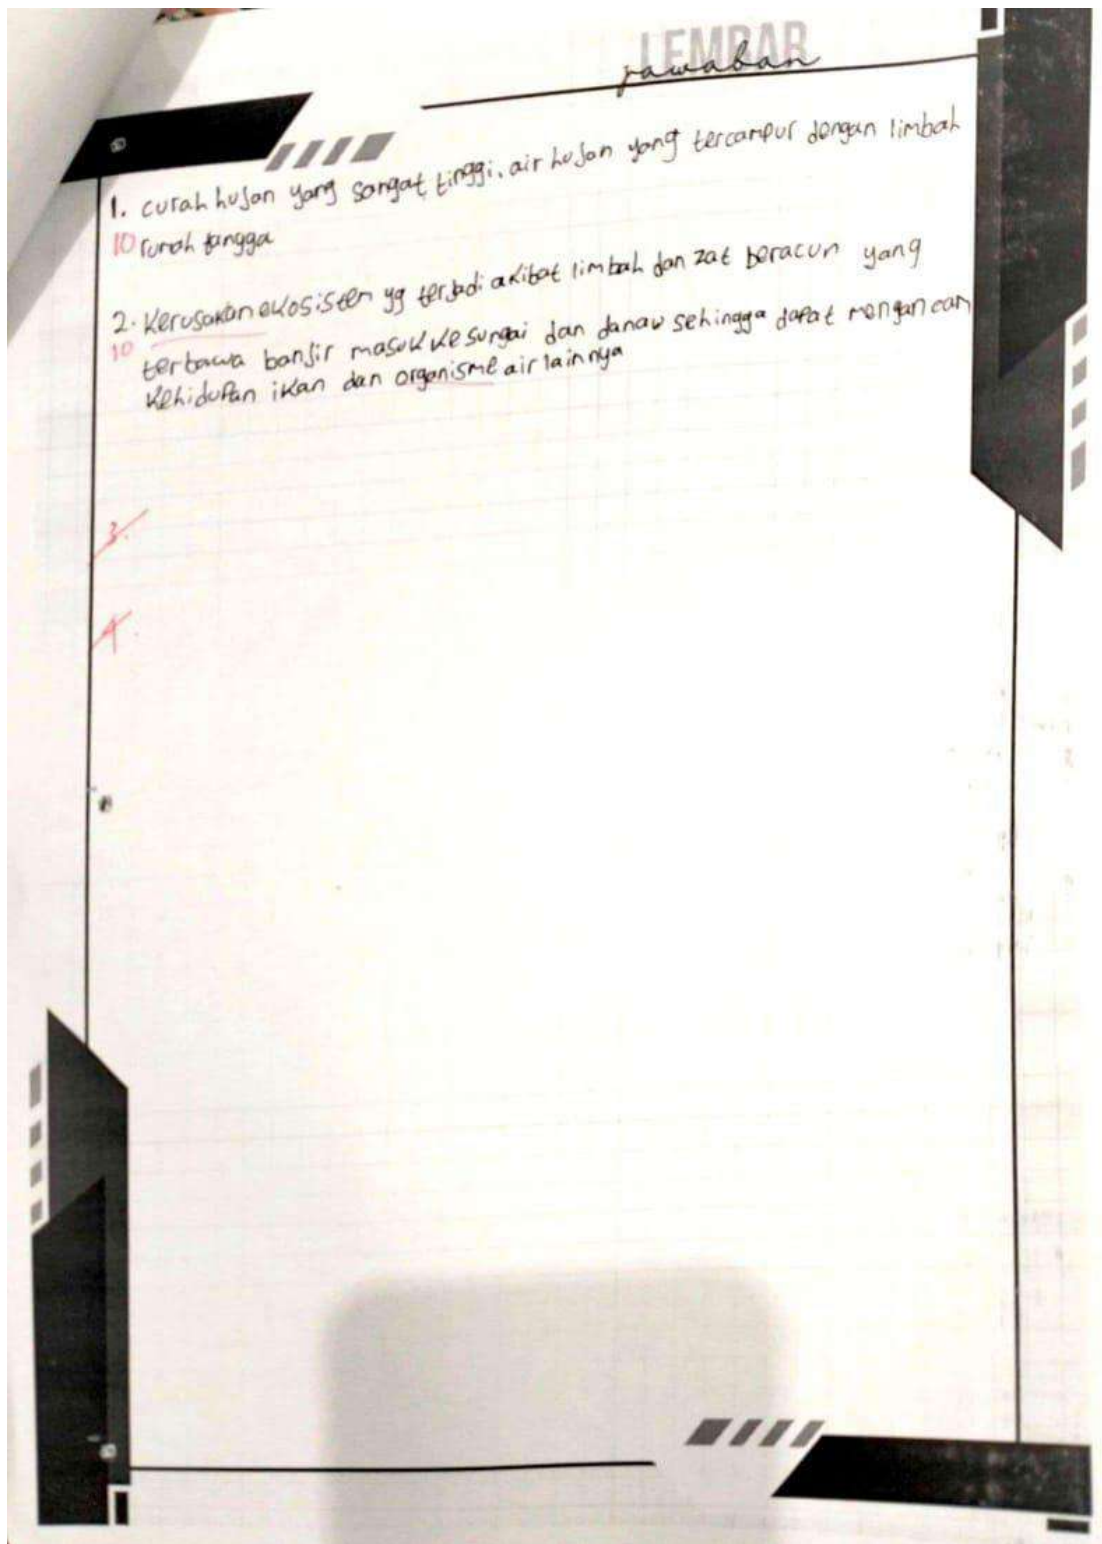 LEMBAR
jawaban
1. curah hujan yang sangat tinggi, air hujan yang tercampur dengan limbah
10 rumah tangga
2. Kerusakan ekosistem yg terjadi akibat limbah dan zat beracun yang
10
terbawa banjir masuk ke sungai dan danau sehingga dapat mengancam
kehidupan ikan dan organisme air lainnya
3.
4.